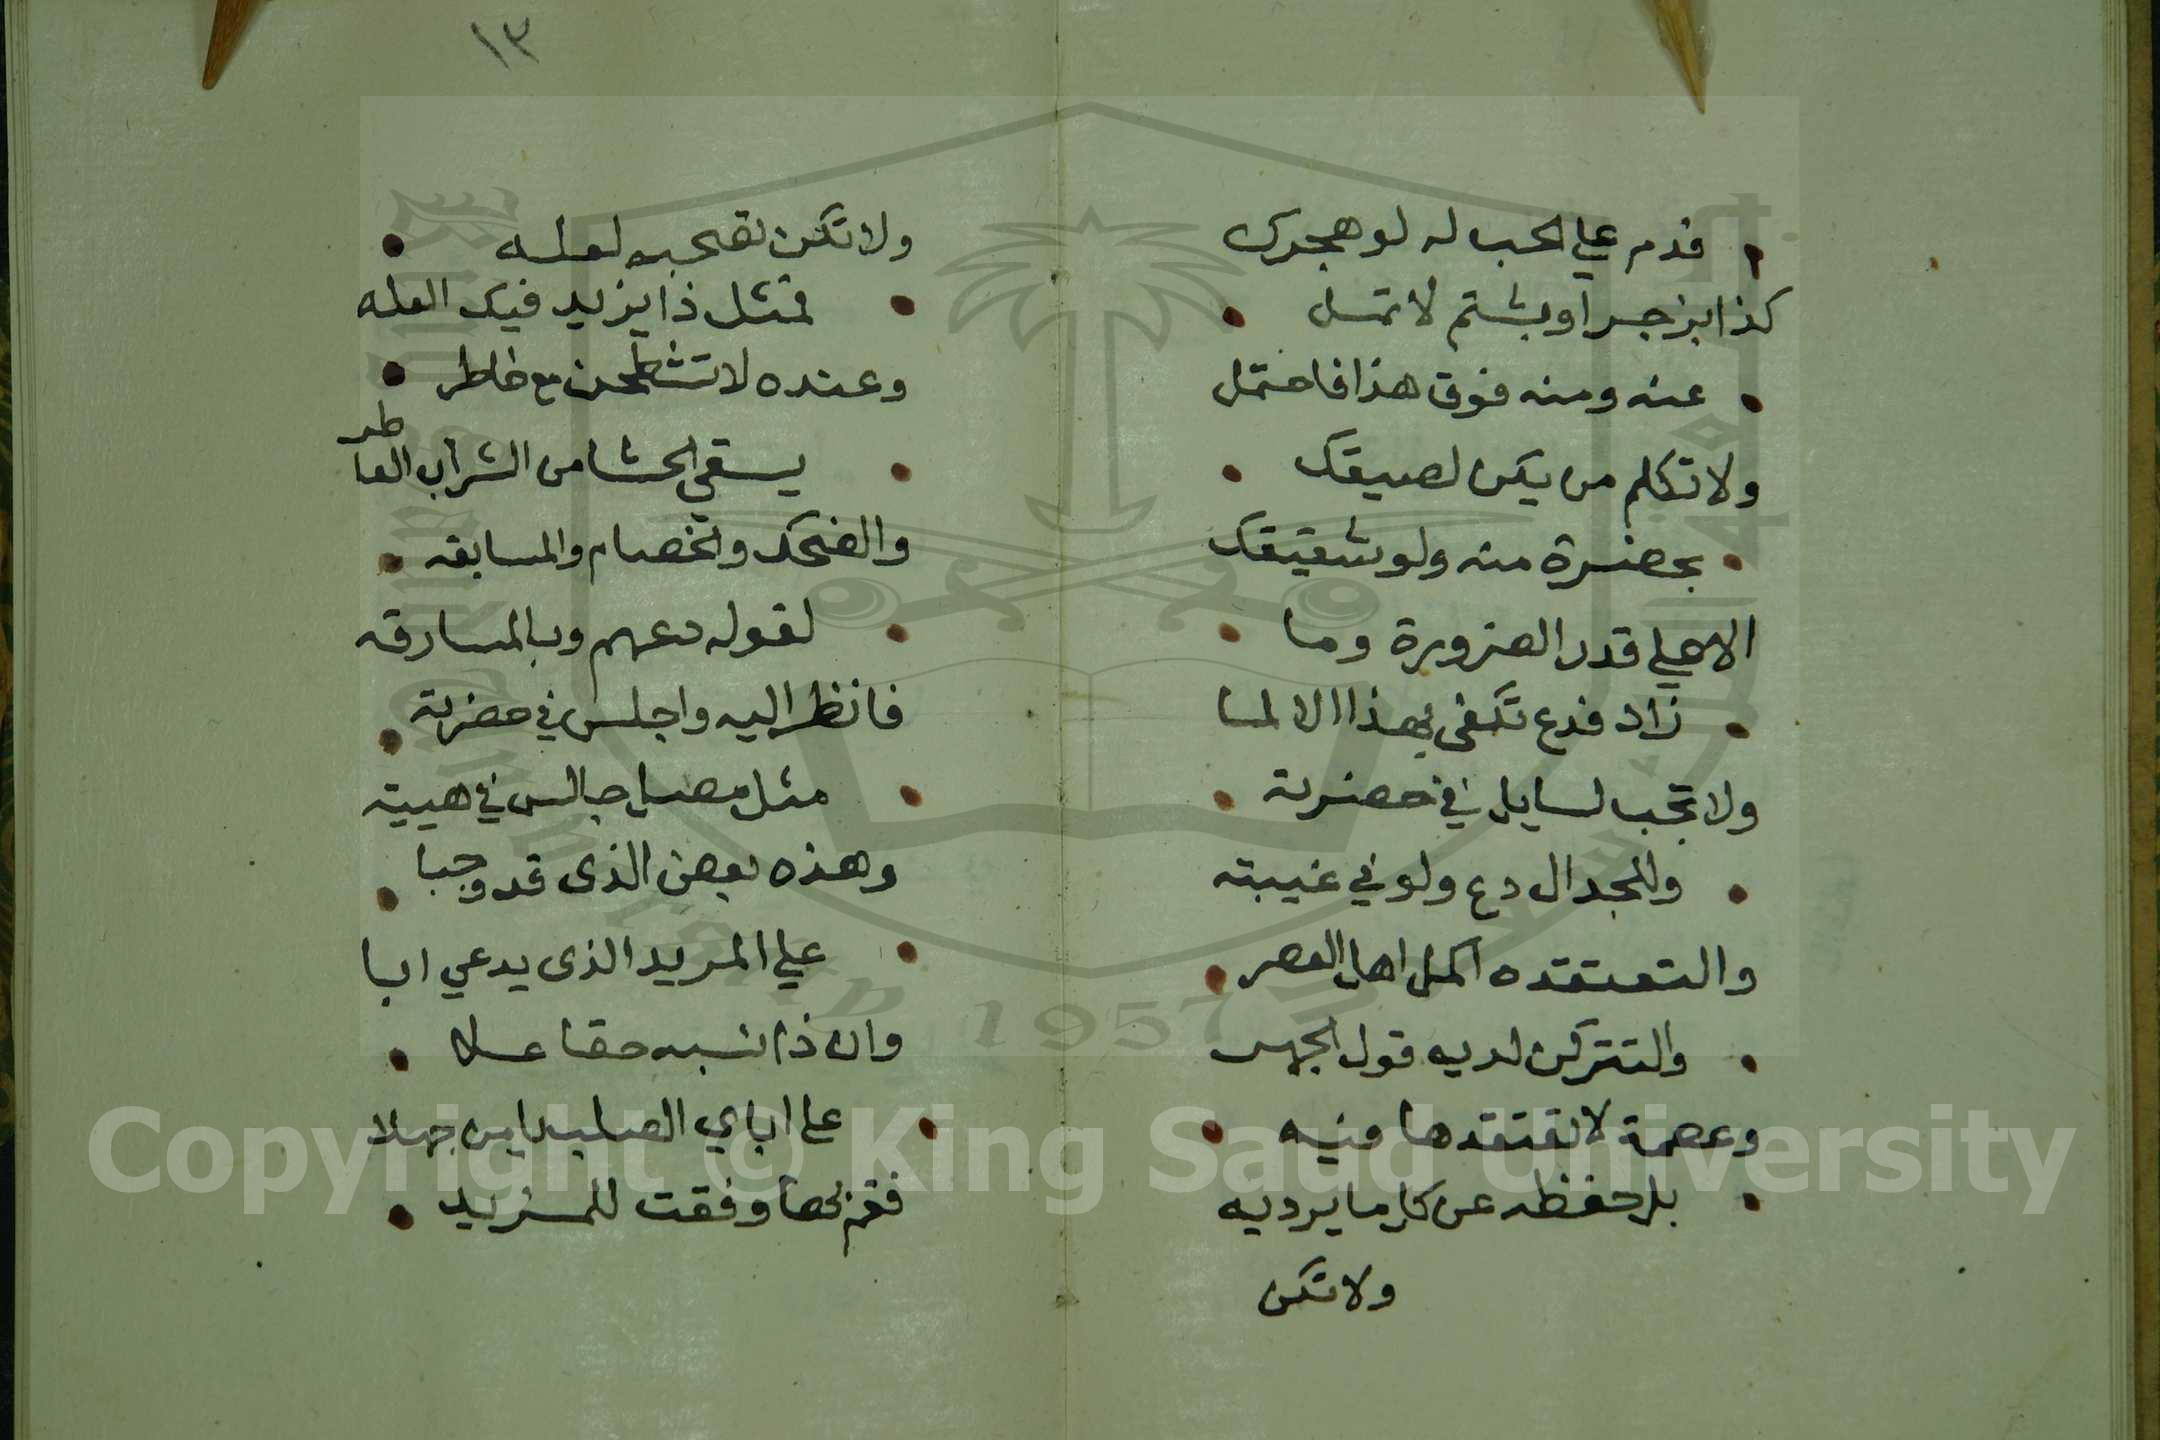 فدم علي الحب له لو هجرك
كذا بزجر او بشتم لا تمل
عنه ومنه فوق هذا فاحتمل
ولا تكلم من يكن لصيقك
بحضرة منه ولو شقيقك
الا علي قدر الضرورة وما
زاد فدع تكفى بهذا الالما
ولا تجب لسايل في حضرته
وللجدال دع ولو في غيبته
ولتعتقده اكمل اهل العصر
ولتتركن لديه قول الجهر
وعصمة لا تعتقدها فيه
بل حفظه عن كل ما يرديه
ولا تكن
١٣
ولا تكن تصحبه لعله
فمثل ذا يزيد فيك العله
وعنده لا تشطحن مع خاطر
يسقي الحشا من الشراب العاطر
والضحك والخصام والمسابقه
لقوله دعهم وبالمسارقه
فانظر اليه واجلس في حضرته
مثل مصل جالس في هيبته
وهذه بعض الذى قد وجبا
علي المريد الذى يدعي ابا
وان ذا نسبه حقا علا
علي اباي الصلب يا من جهلا
فقم بحقها وفقت للمزيد
Copyright © King Saud University
1957